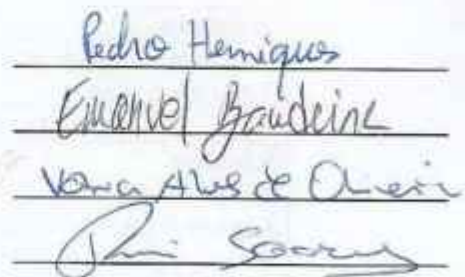 Pedro Henriques
Emanuel Bandeira
Vânia Alves de Oliveira
Rui Soares